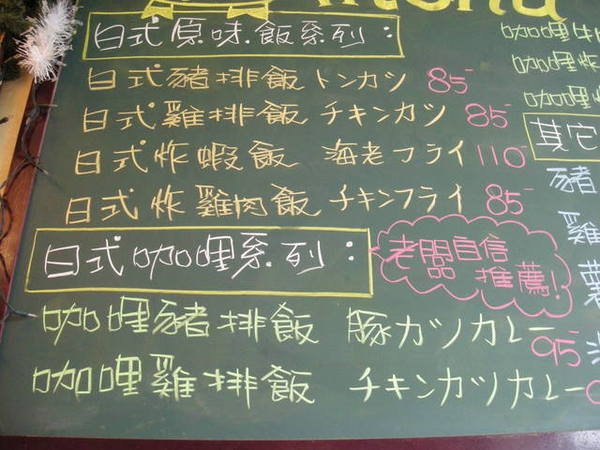 Menu
日式原味飯系列：
日式豬排飯 トンカツ 85
日式雞排飯 チキンカツ 85
日式炸蝦飯 海老フライ 110
日式炸雞肉飯 チキンフライ 85
日式咖哩系列：
老闆自信
推薦！
咖哩豬排飯 豚カツカレー 95
咖哩雞排飯 チキンカツカレー
咖哩牛
咖哩炸
咖哩炸
其它
豬
雞
薯